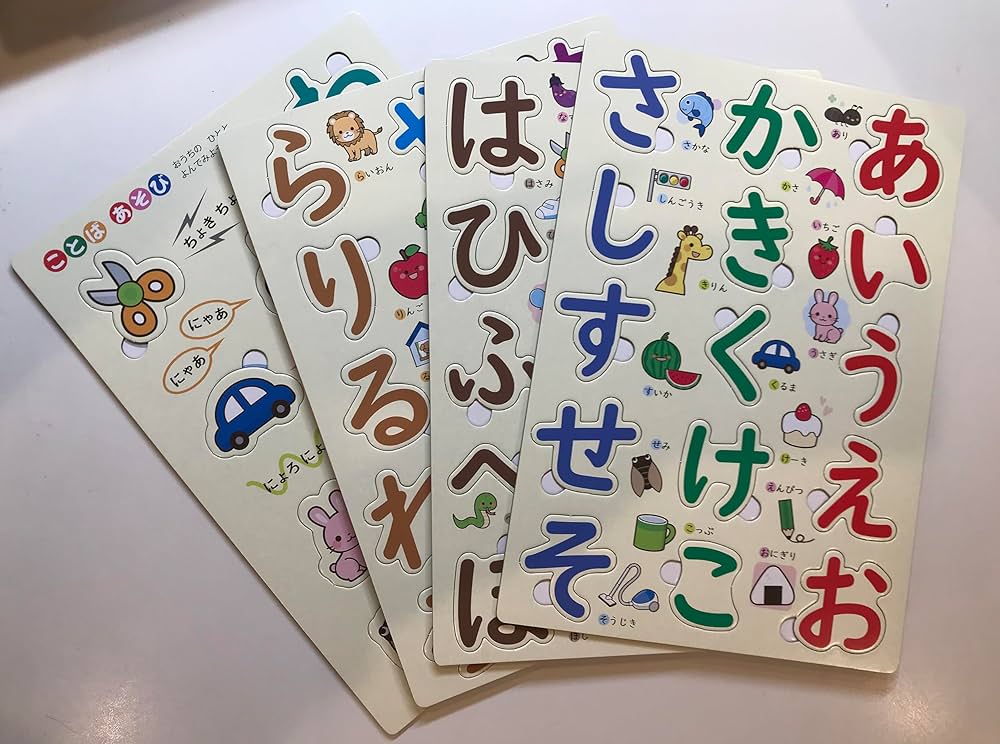 あ
い
う
え
お
か
き
く
け
こ
さ
し
す
せ
そ
あり
いちご
うさぎ
えんぴつ
おにぎり
かさ
きりん
くるま
けーき
こっぷ
さかな
しんごうき
すいか
せみ
そうじき
は
ひ
ふ
へ
ほ
はさみ
ら
り
る
れ
らいおん
りんご
ことば あそび
おうちの
ちょき
にゃあ
にゃあ
にょろ